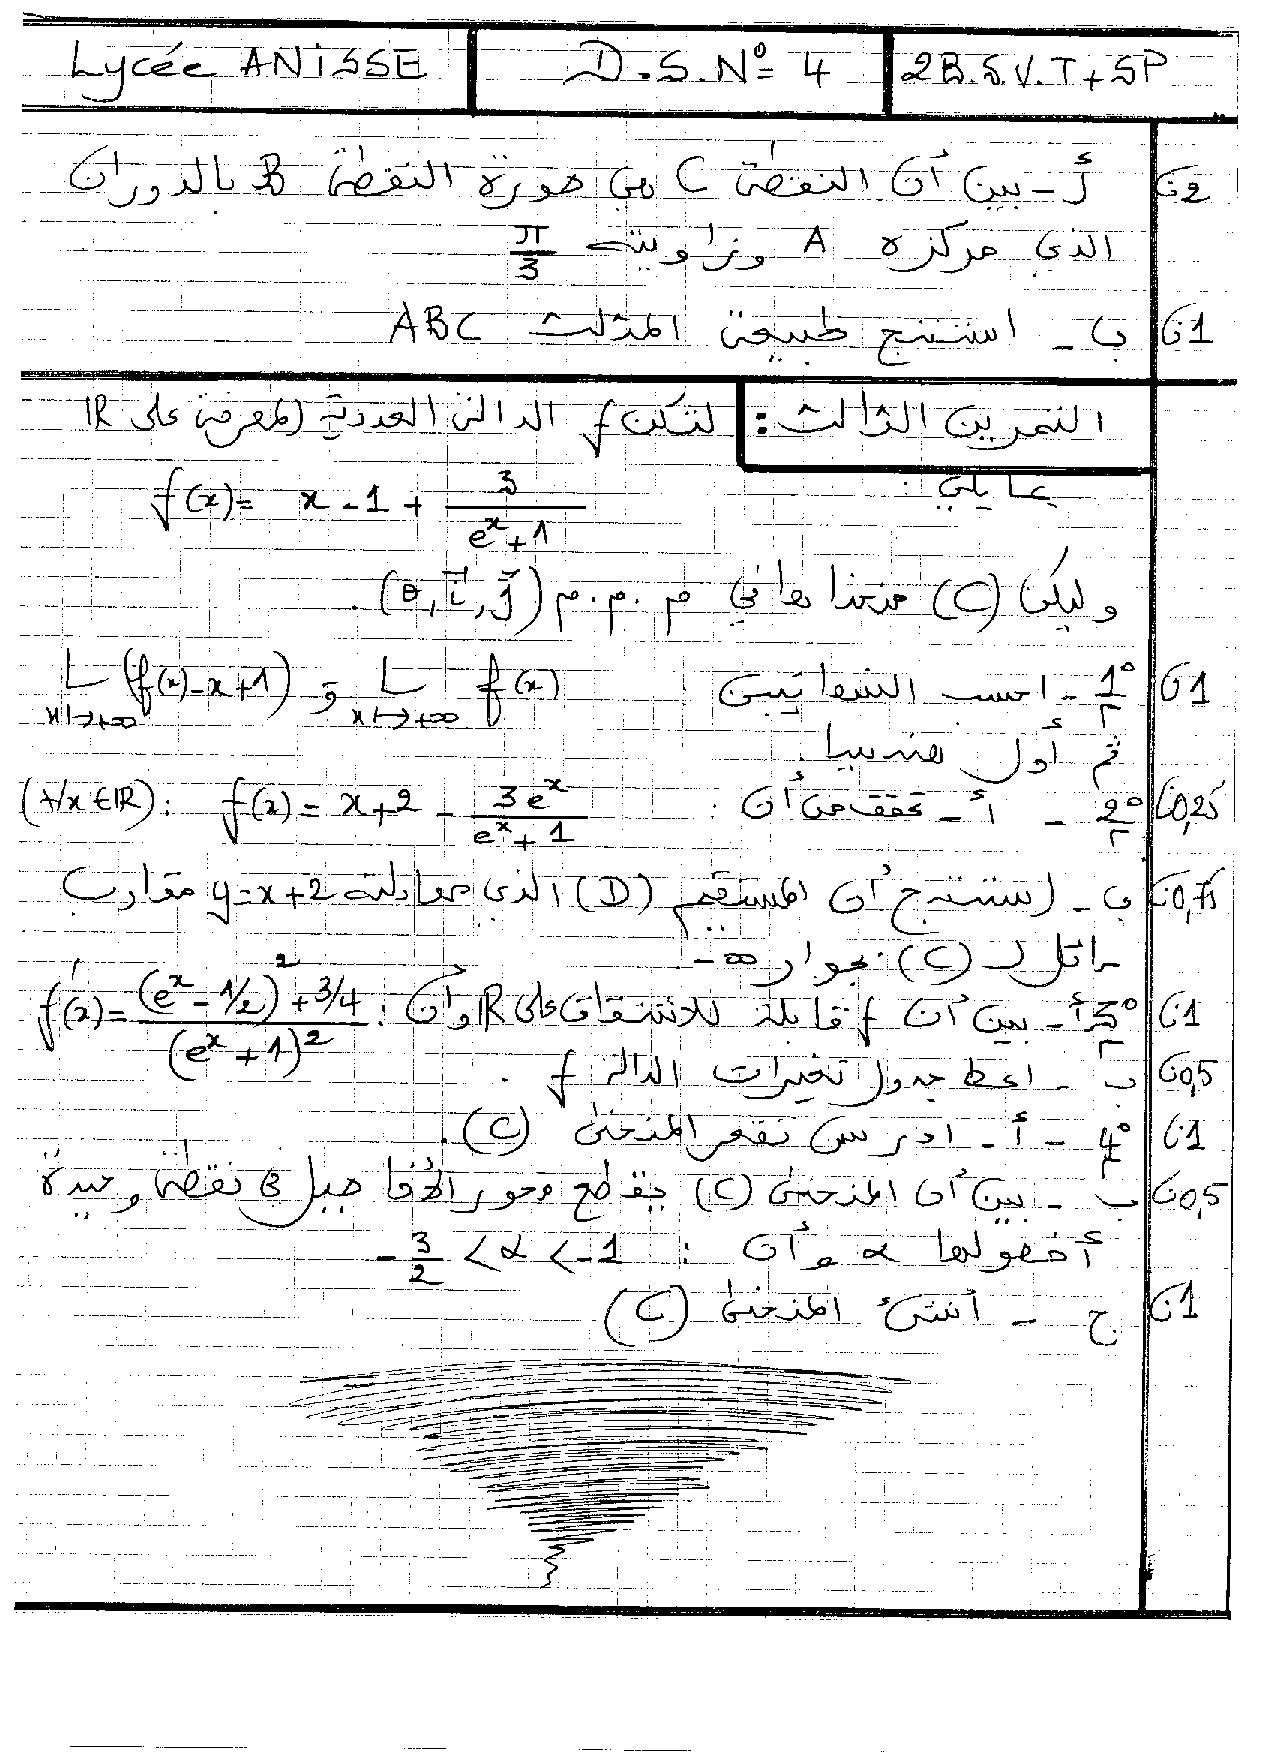 Lycée ANISSE D.S.N° 4 2B.S.V.T+SP
أ - بين أن النقطة C هي صورة النقطة B بالدوران 2ن
الذي مركزه A وزاويته π/3
ب - استنتج طبيعة المثلث ABC 1ن
التمرين الثالث : لتكن f الدالة العددية المعرفة على IR
بما يلي :
f(x) = x - 1 + 3/(e^x + 1)
وليكن (C) منحناها في م.م.م (O, i, j) .
1° - احسب النهايتين Lim x↦+∞ f(x) و Lim x↦+∞ (f(x) - x + 1) 1ن
ثم أول هندسيا .
2° - أ - تحقق من أن : f(x) = x + 2 - 3e^x/(e^x + 1) : (∀x ∈ IR) 0,25ن
ب - استنتج أن المستقيم (D) الذي معادلته y = x + 2 مقارب 0,75ن
مائل لـ (C) بجوار -∞
3° أ - بين أن f قابلة للاشتقاق على IR وأن : f'(x) = ((e^x - 1/2)^2 + 3/4)/(e^x + 1)^2 1ن
ب - اعط جدول تغيرات الدالة f . 0,5ن
4° - أ - ادرس تقعر المنحنى (C) . 1ن
ب - بين أن المنحنى (C) يقطع محور الأفاصيل في نقطة وحيدة 0,5ن
أفصولها α وأن : -3/2 < α < -1
ج - أنشئ المنحنى (C) 1ن